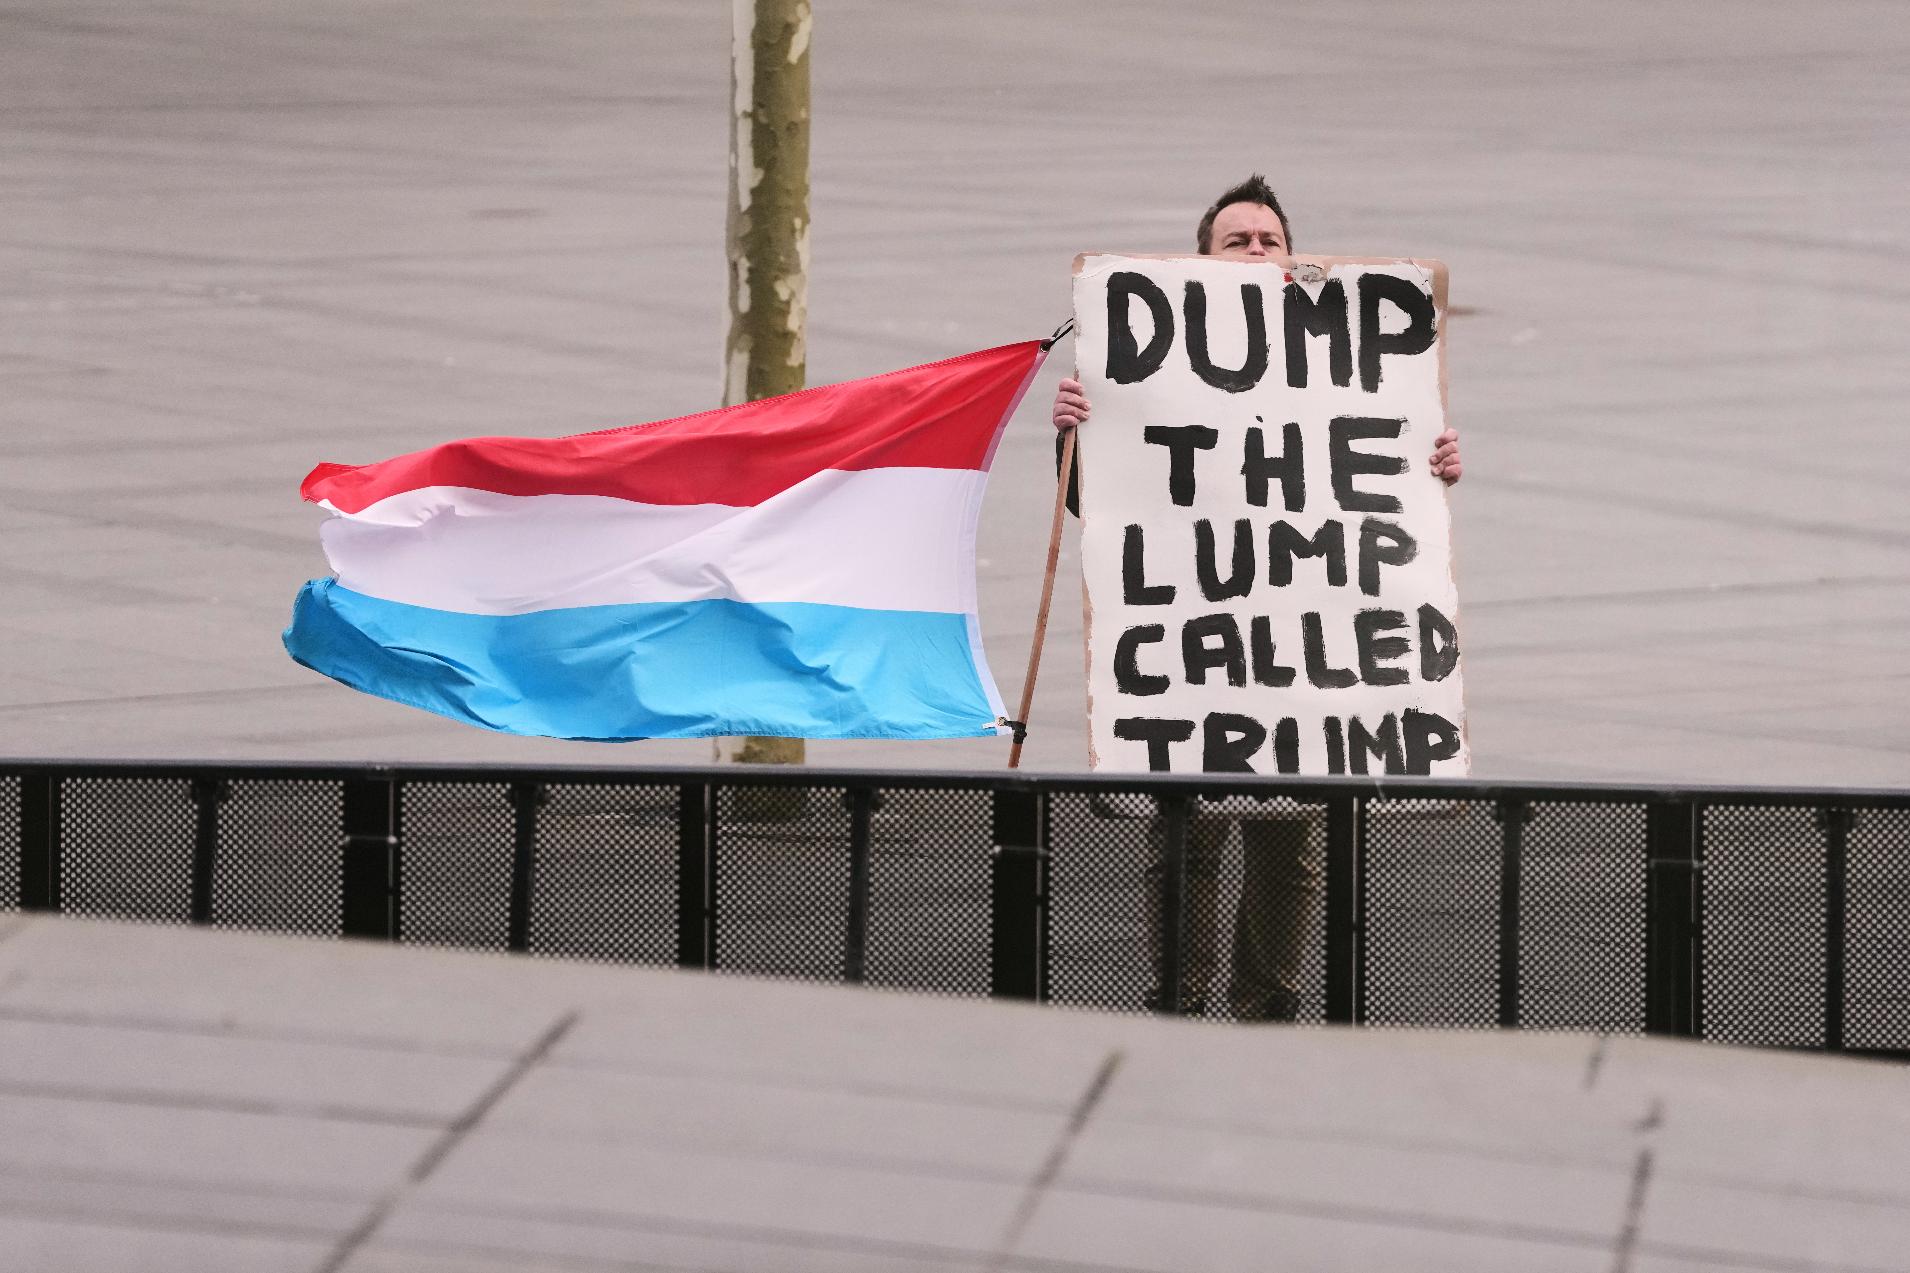 DUMP
THE
LUMP
CALLED
TRUMP